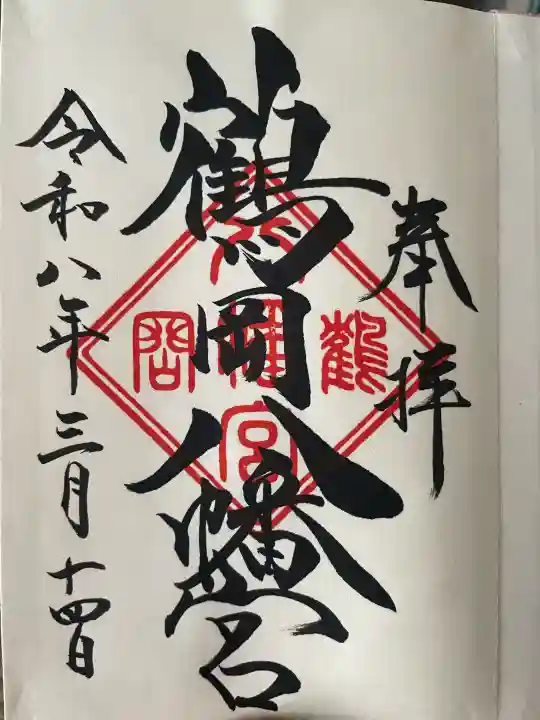 奉拝
鶴岡八幡宮
鶴
岡
八幡宮
令和八年三月十四日